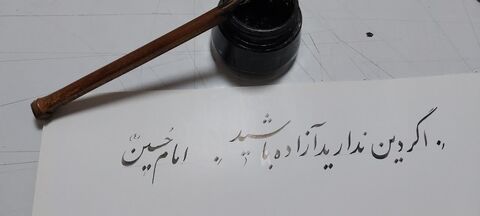 اگر دین ندارید آزاده باشید. امام حسین (ع)